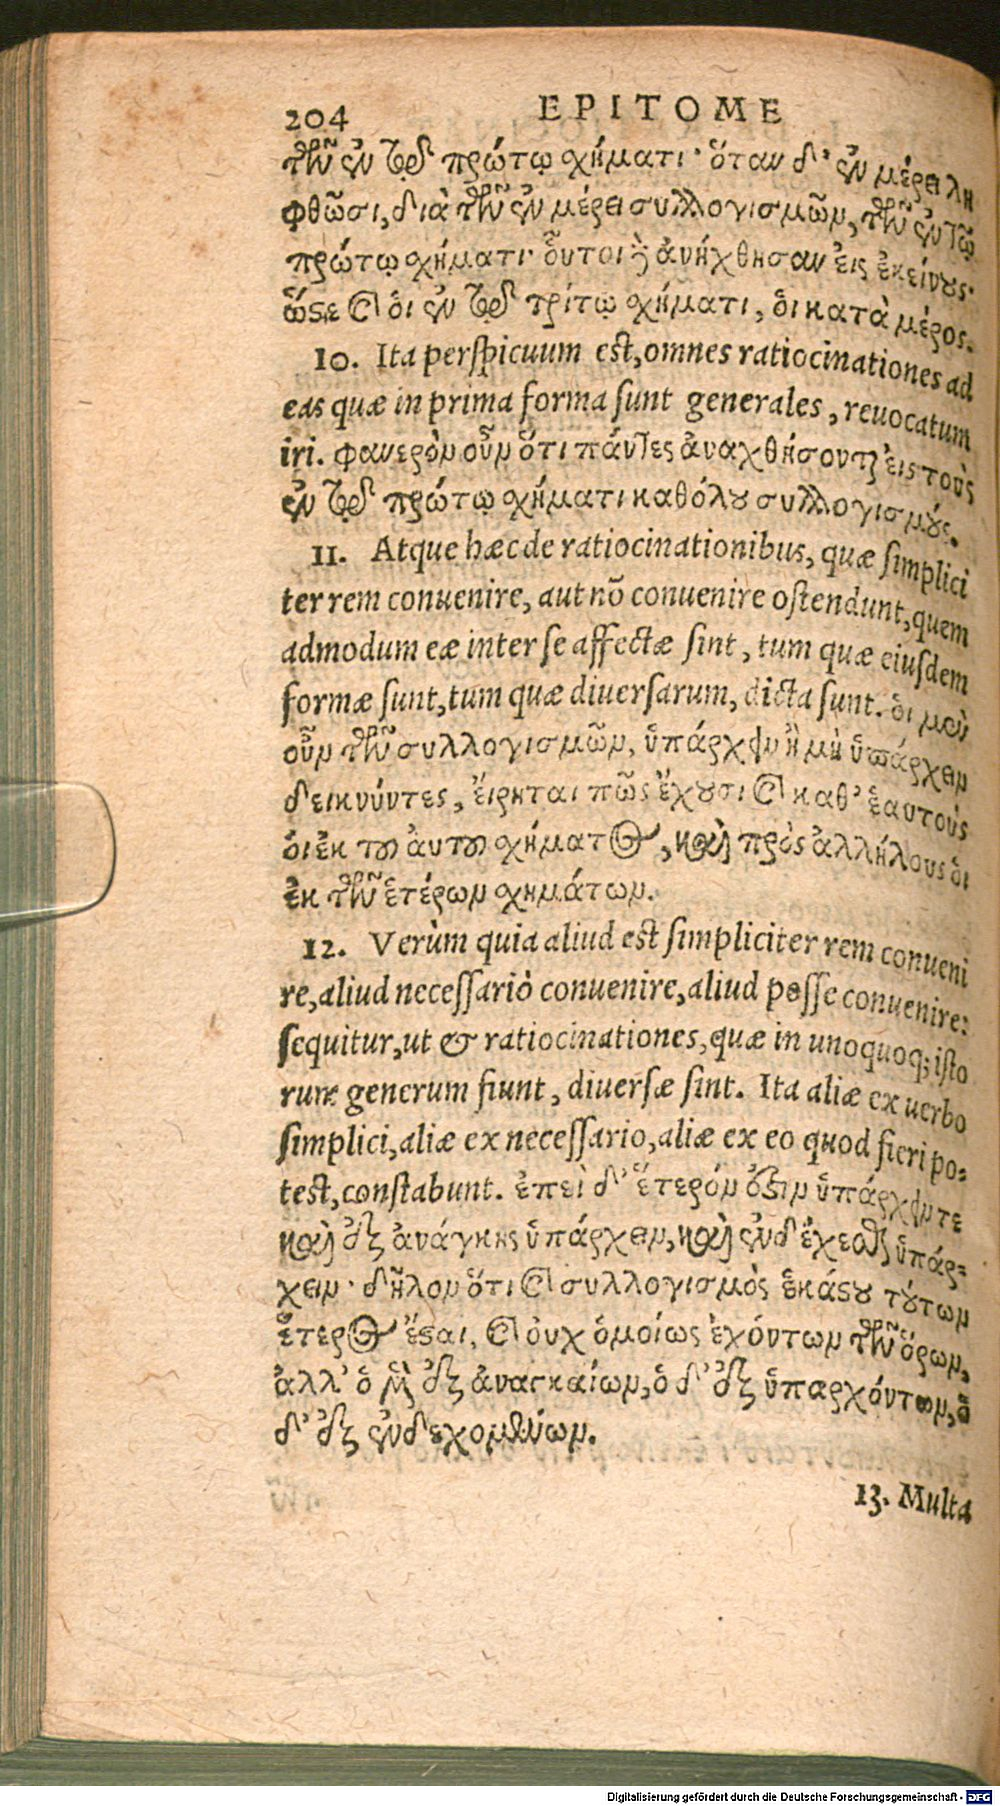 204 EPITOME
τῶν ἐν τῷ πρώτῳ σχήματι· ὅταν δ' ἐν μέρει λη
φθῶσι, διὰ τῶν ἐν μέρει συλλογισμῶν, τῶν ἐν τῷ
πρώτῳ σχήματι· οὗτοι δὲ ἀνήχθησαν εἰς ἐκείνους·
ὥστε καὶ ὁι ἐν τῷ τρίτῳ σχήματι, ὁι κατὰ μέρος.
10. Ita perspicuum est, omnes ratiocinationes ad
eas quæ in prima forma sunt generales, reuocatum
iri. φανερὸν οὖν ὅτι πάντες ἀναχθήσονται ἐις τοὺς
ἐν τῷ πρώτῳ σχήματι καθόλου συλλογισμούς.
11. Atque hæc de ratiocinationibus, quæ simplici
ter rem conuenire, aut nõ conuenire ostendunt, quem
admodum eæ inter se affectæ sint, tum quæ eiusdem
formæ sunt, tum quæ diuersarum, dicta sunt. ὁι μὲν
οὖν τῶν συλλογισμῶν, ὑπάρχειν ἢ μὴ ὑπάρχειν
δεικνύντες, ἔιρηται πῶς ἔχουσι καὶ καθ' ἑαυτοὺς
ὁι ἐκ τοῦ ἀυτοῦ σχήματος, καὶ πρὸς ἀλλήλους ὁι
ἐκ τῶν ἑτέρων σχημάτων.
12. Verùm quia aliud est simpliciter rem conueni
re, aliud necessariò conuenire, aliud posse conuenire:
sequitur, ut & ratiocinationes, quæ in unoquoq; isto
rum generum fiunt, diuersæ sint. Ita aliæ ex uerbo
simplici, aliæ ex necessario, aliæ ex eo quod fieri po-
test, constabunt. ἐπεὶ δ' ἕτερόν ἐστιν ὑπάρχειν τε
καὶ ἐξ ἀνάγκης ὑπάρχειν, καὶ ἐνδέχεσθαι ὑπάρ-
χειν· δῆλον ὅτι καὶ συλλογισμὸς ἑκάστου τούτων
ἕτερος ἔσται, καὶ οὐχ ὁμοίως ἐχόντων τῶν ὅρων,
ἀλλ' ὁ μὲν ἐξ ἀναγκαίων, ὁ δ' ἐξ ὑπαρχόντων, ὁ
δ' ἐξ ἐνδεχομένων.
13. Multa
Digitalisierung gefördert durch die Deutsche Forschungsgemeinschaft - DFG